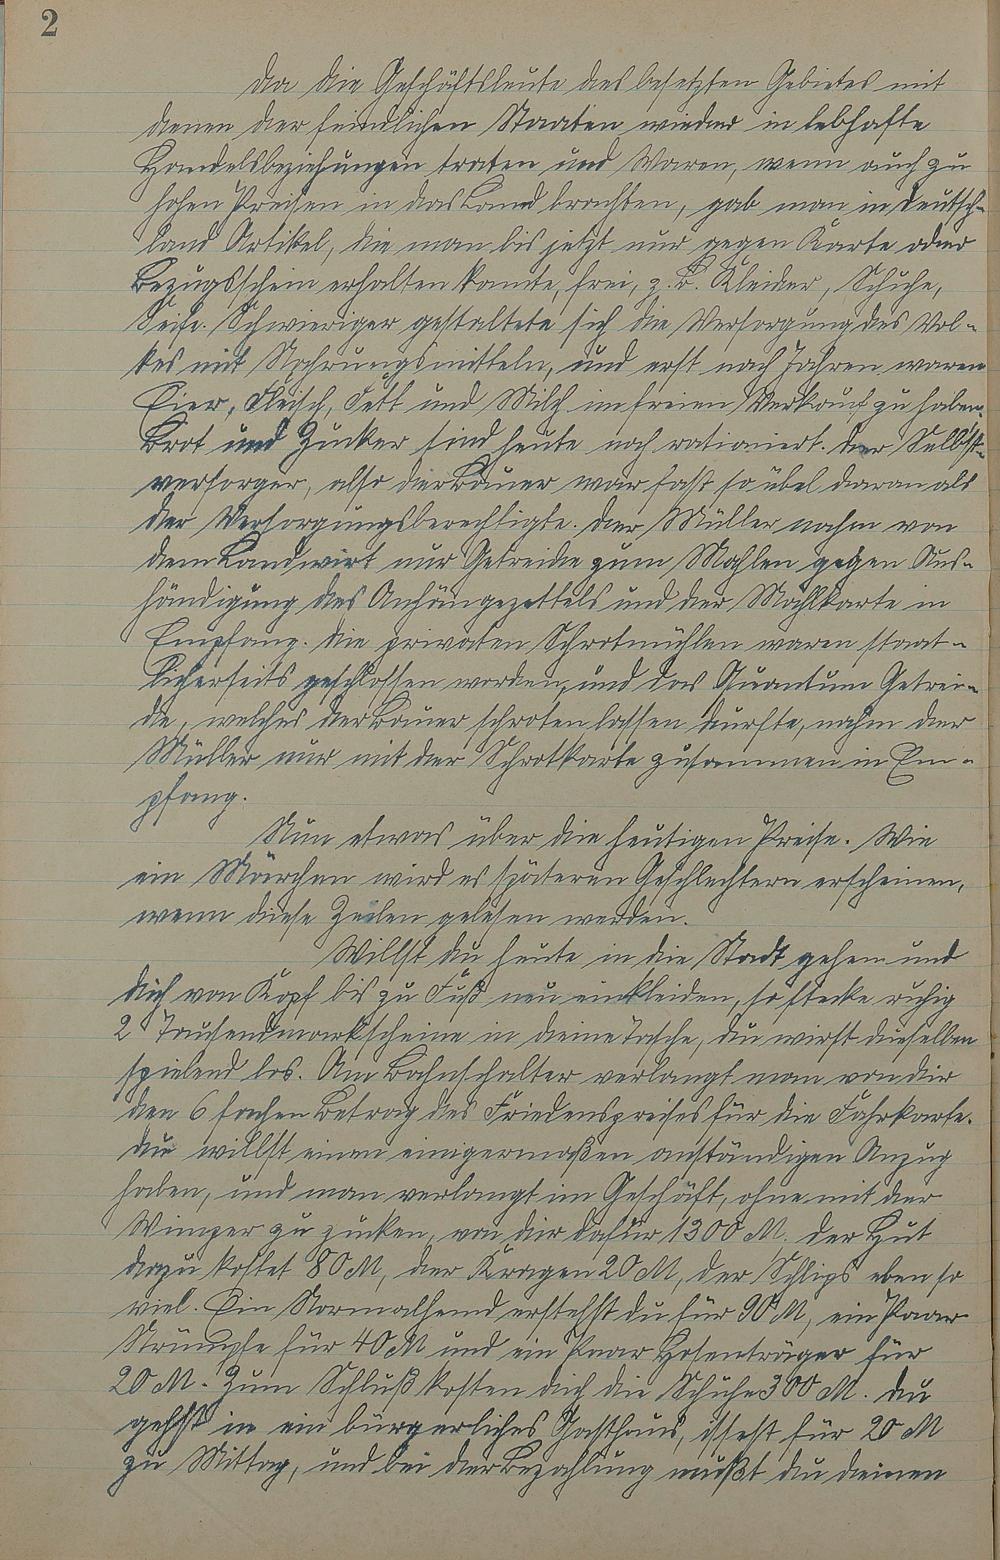 2
Da die Geschäftsleute des besetzten Gebietes mit
denen der feindlichen Staaten wieder in lebhafte
Handelsbeziehungen traten und Waren, wenn auch zu
hohen Preisen in das Land brachten, gab man in Deutsch-
land Artikel, die man bis jetzt nur gegen Karte oder
Bezugsschein erhalten konnte, frei, z. B. Kleider, Schuhe,
Seife. Schwieriger gestaltete sich die Versorgung des Vol-
kes mit Nahrungsmitteln, und erst nach Jahren waren
Eier, Fleisch, Fett und Milch im freien Verkauf zu haben.
Brot und Zucker sind heute noch rationiert. Der Selbst-
versorger, also der Bauer war fast so übel daran als
der Versorgungsberechtigte. Der Müller nahm von
dem Landwirt nur Getreide zum Mahlen gegen Aus-
händigung des Anhängezettels und der Mahlkarte in
Empfang. Die privaten Schrotmühlen waren staat-
licherseits geschlossen worden, und das Quantum Getrei-
de, welches der Bauer schroten lassen durfte, nahm der
Müller nur mit der Schrotkarte zusammen in Em-
pfang.
Nun etwas über die heutigen Preise. Wie
ein Märchen wird es späteren Geschlechtern erscheinen,
wenn diese Zeilen gelesen werden.
Willst du heute in die Stadt gehen und
dich von Kopf bis zu Fuß neu einkleiden, so stecke ruhig
2 Tausendmarkscheine in deine Tasche, du wirst dieselben
spielend los. Am Bahnschalter verlangt man von dir
den 6 fachen Betrag des Friedenspreises für die Fahrkarte.
Du willst einen einigermaßen anständigen Anzug
haben, und man verlangt im Geschäft, ohne mit der
Wimper zu zucken, von dir dafür 1300 M. Der Hut
dazu kostet 80 M, der Kragen 20 M, der Schlips eben so
viel. Ein Normalhemd erstehst du für 90 M, ein Paar
Strümpfe für 40 M und ein Paar Hosenträger für
20 M. Zum Schluß kosten dich die Schuhe 300 M. Du
gehst in ein bürgerliches Gasthaus, issest für 20 M
zu Mittag, und bei der Bezahlung mußt du deinen